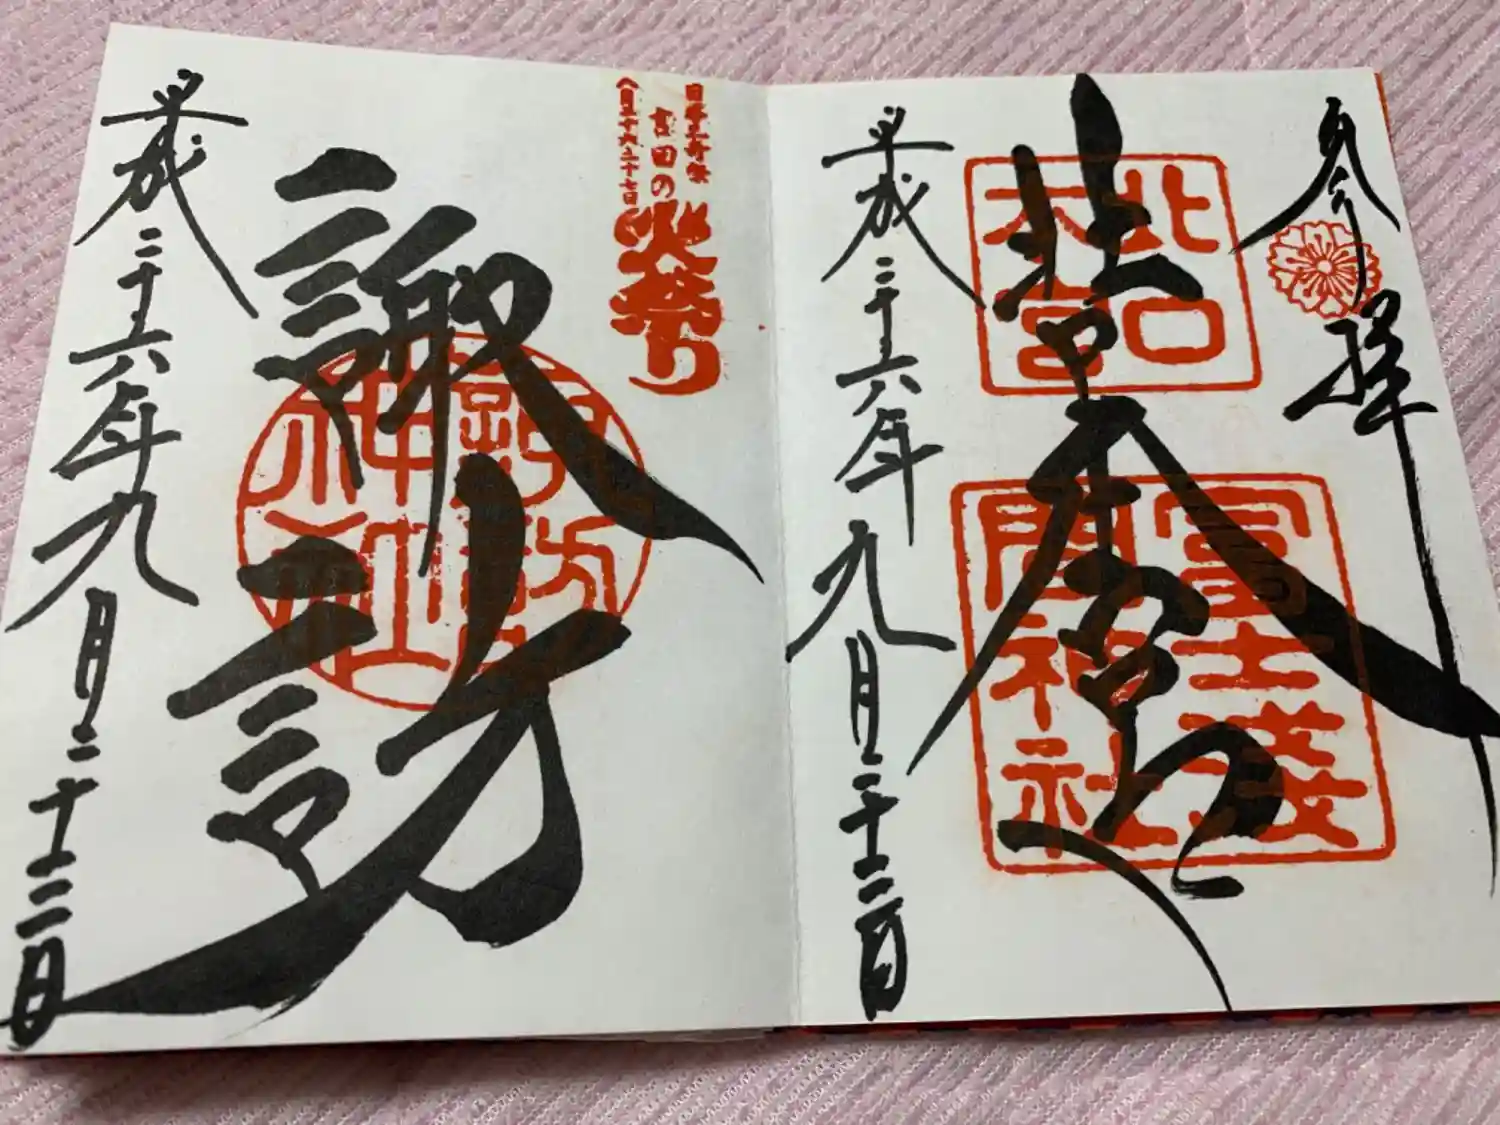 参拝
北口本宮
北口本宮
冨士浅間神社
平成二十六年九月二十二日
日本三奇祭
吉田の火祭り
八月二十六二十七日
諏訪
諏訪神社
平成二十六年九月二十二日